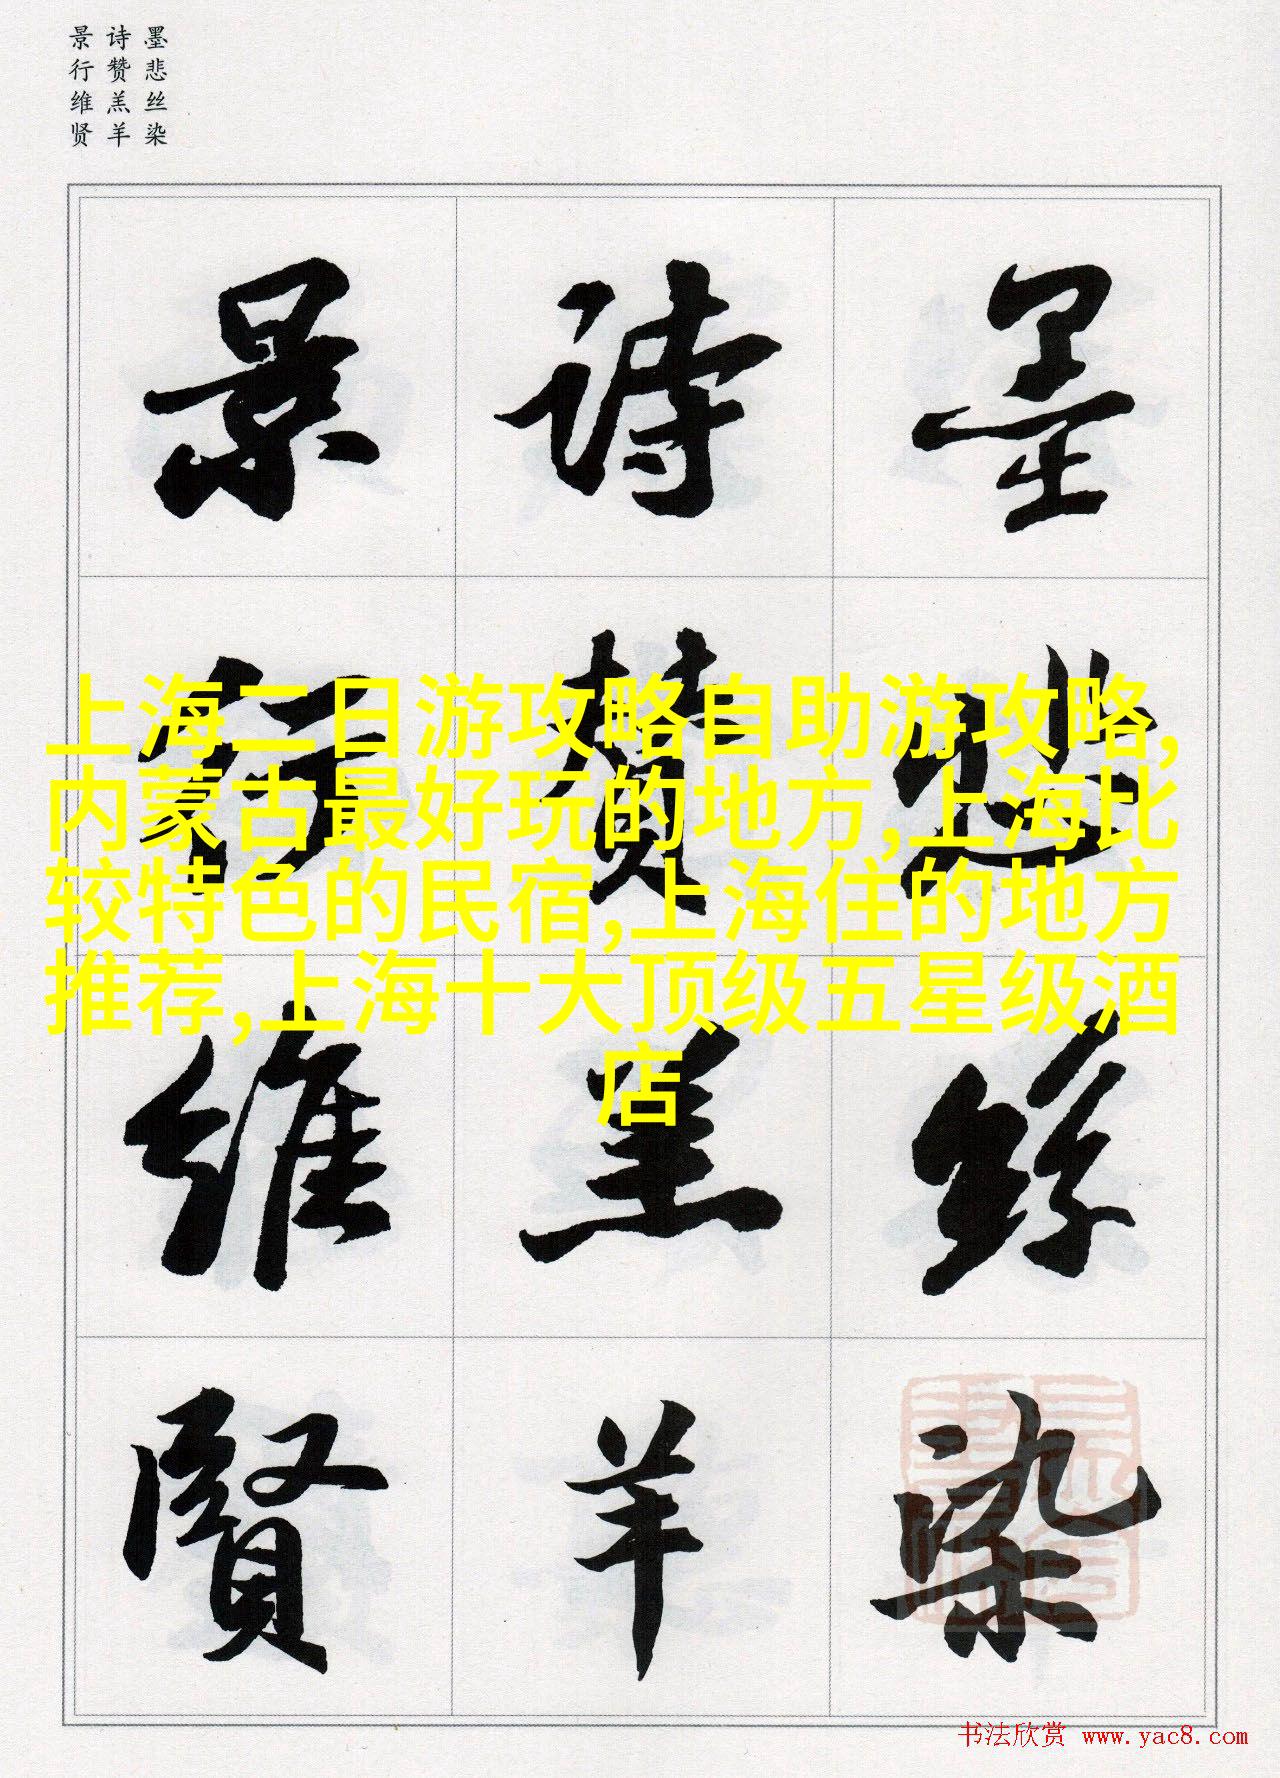 墨悲丝染
诗赞羔羊
景行维贤
墨悲絲染
詩贊羔羊
景行維賢
上海二日游攻略自助游攻略,
内蒙古最好玩的地方,上海比
较特色的民宿,上海住的地方
推荐,上海十大顶级五星级酒
店
书法欣赏 www.yac8.com